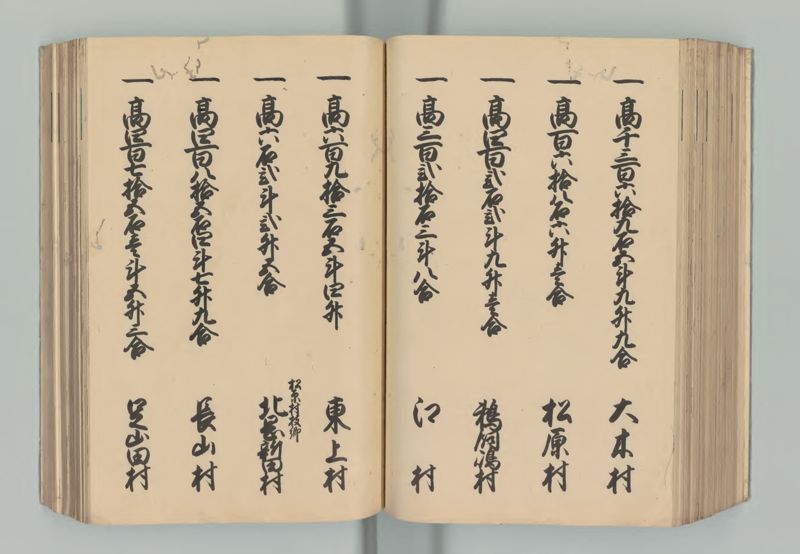 一 高千三百六拾九石五斗九升九合 大木村
一 高百六拾八石六升壱合 松原村
一 高四百弐石弐斗九升壱合 鵜飼嶋村
一 高三百弐拾石三斗八合 江村
一 高六百九拾三石五斗四升 東上村
松原村枝郷
一 高六石弐斗弐升五合 北新田村
一 高四百八拾五石四斗七升九合 長山村
一 高四百七拾五石壱斗五升三合 足山田村